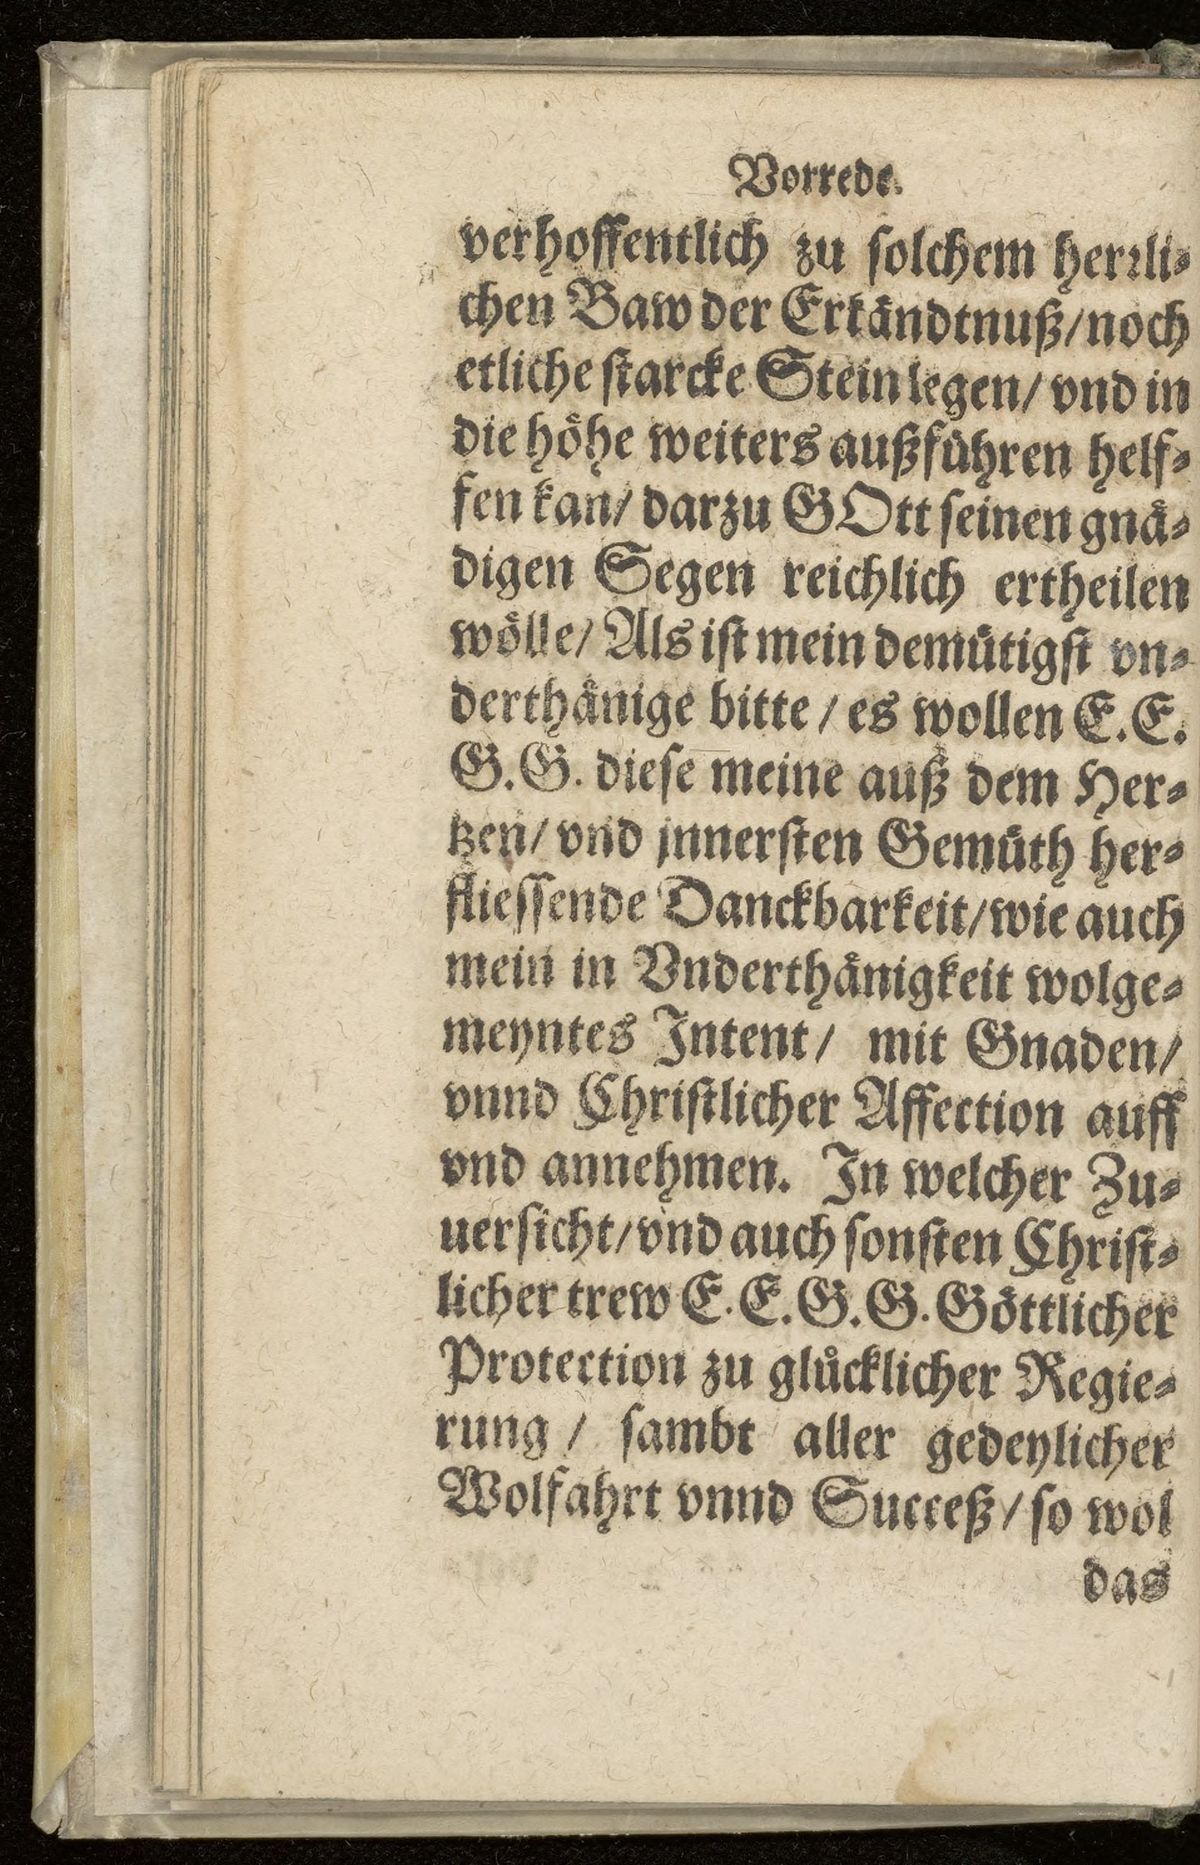 Vorrede.
verhoffentlich zu solchem herꝛli⸗
chen Baw der Erkaͤndtnuß/noch
etliche starcke Stein legen/ vnd in
die hoͤhe weiters außfuͤhren helf⸗
fen kan/ darzu GOtt seinen gnaͤ⸗
digen Segen reichlich ertheilen
woͤlle/ Als ist mein demuͤtigst vn⸗
derthaͤnige bitte / es wollen E. E.
G. G. diese meine auß dem Her⸗
tzen/ vnd jnnersten Gemuͤth her⸗
fliessende Danckbarkeit/wie auch
mein in Vnderthaͤnigkeit wolge⸗
meyntes Intent/ mit Gnaden/
vnnd Christlicher Affection auff
vnd annehmen. In welcher Zu⸗
uersicht/vnd auch sonsten Christ⸗
licher trew E. E. G. G. Goͤttlicher
Protection zu gluͤcklicher Regie⸗
rung / sambt aller gedeylicher
Wolfahrt vnnd Succeß/ so wol
das